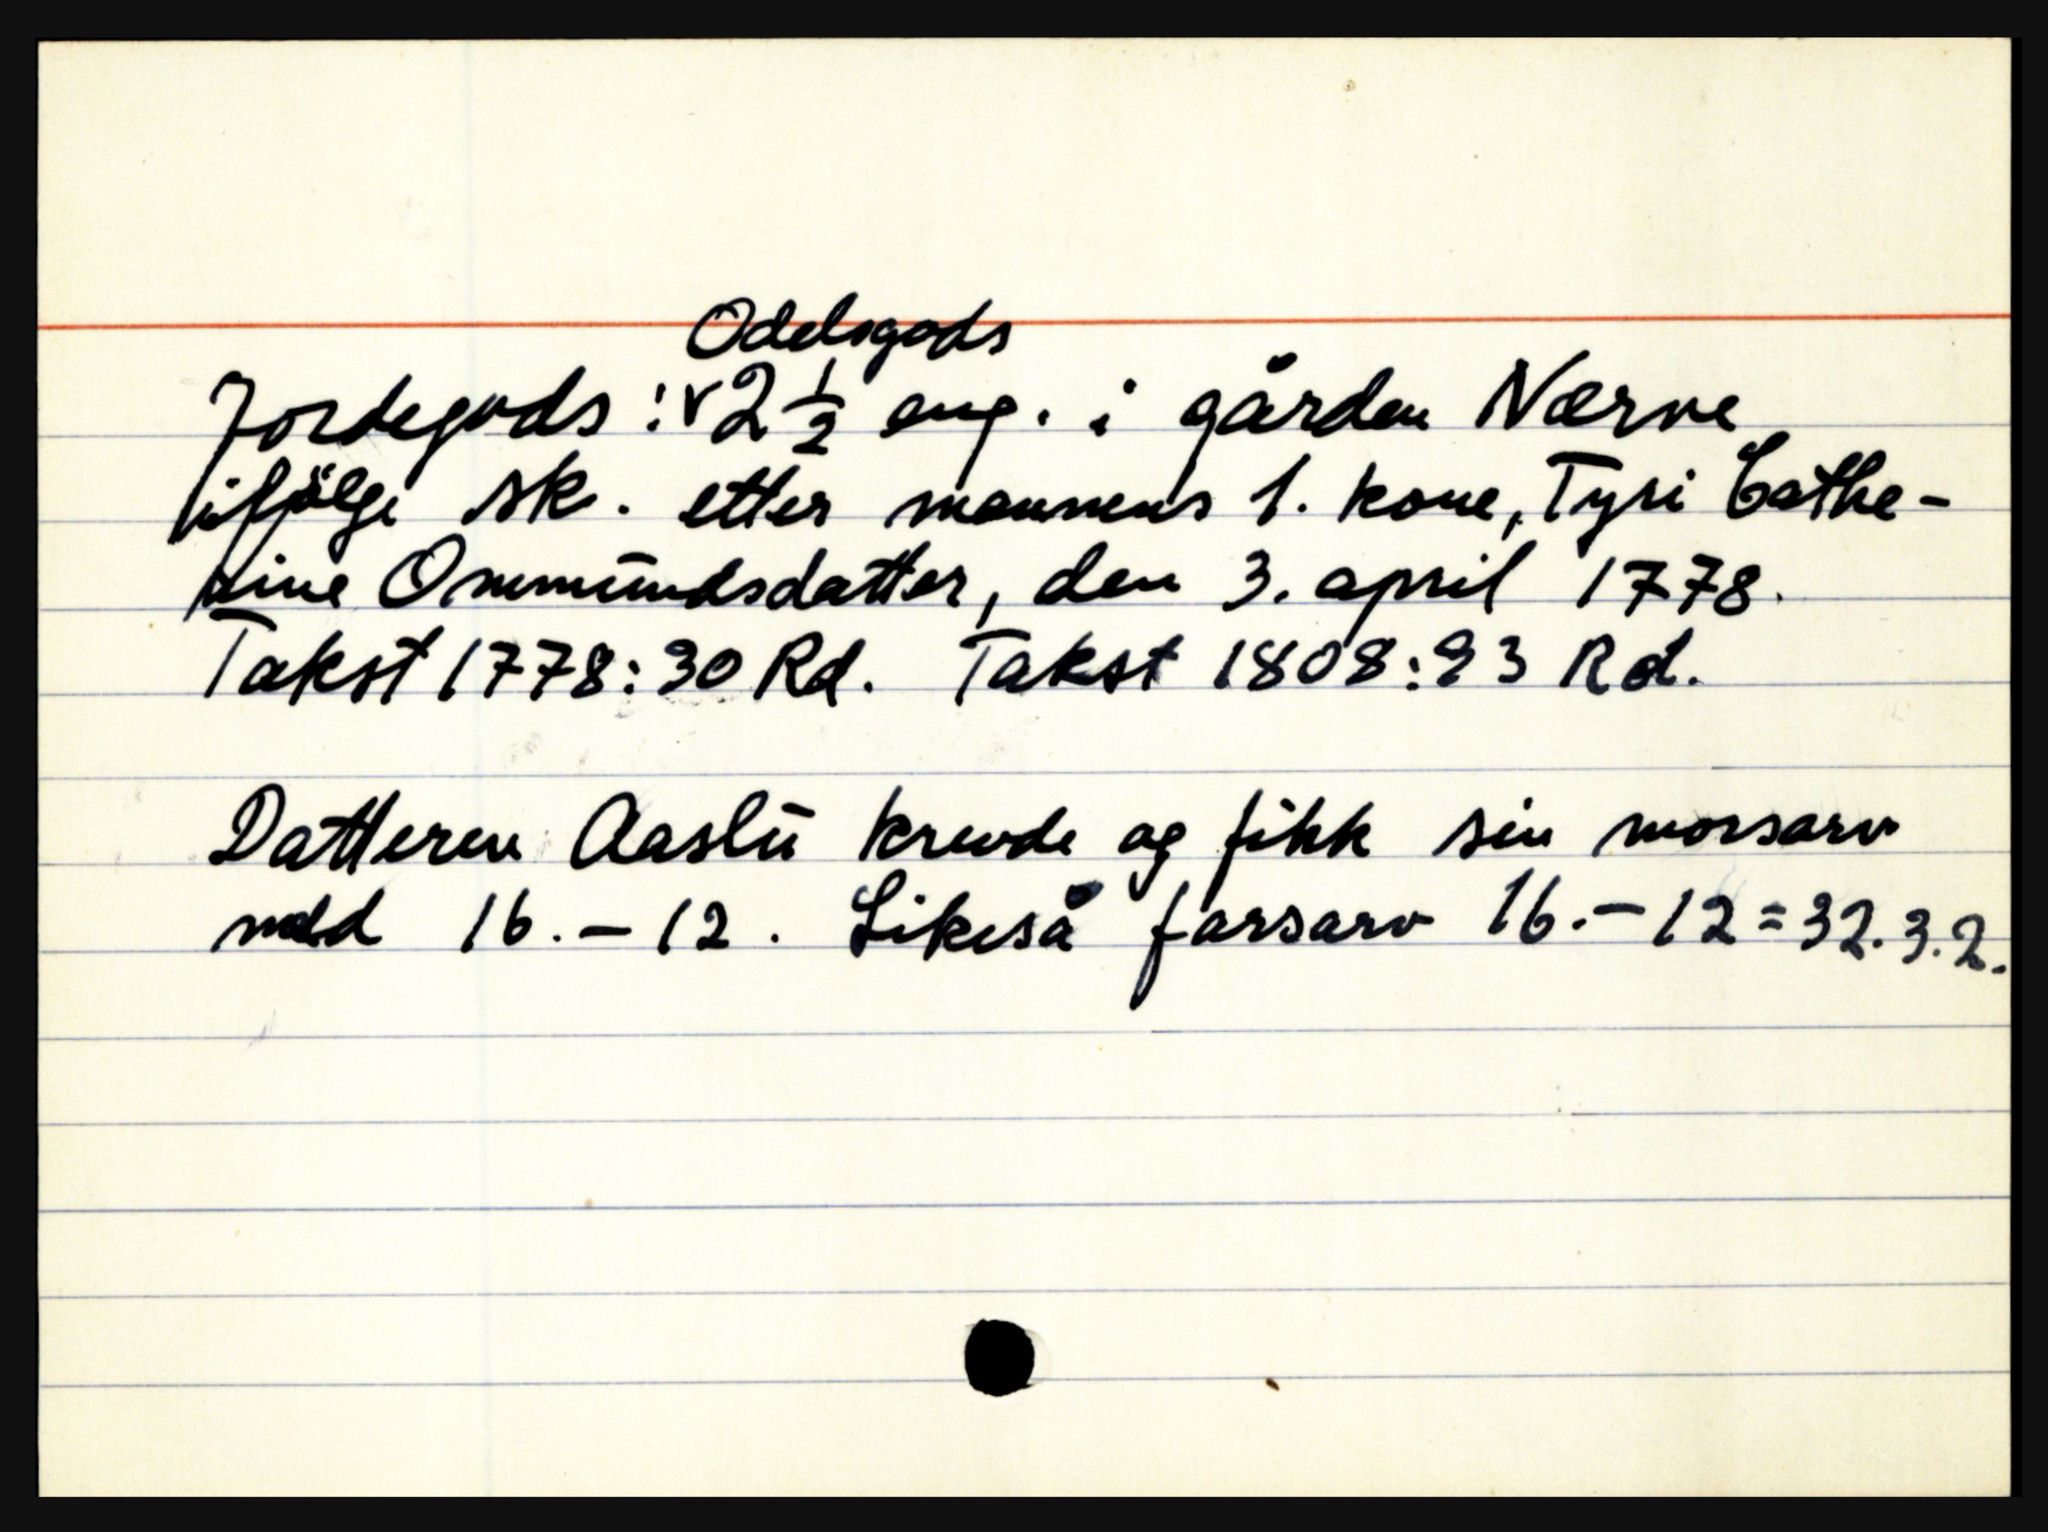 Odelsgods
Jordegods : v 2 1/2 eng. i gården Nærve
ifølge sk. etter mannens 1. kone, Tyri Cathe-
rine Ommundsdatter, den 3. april 1778.
Takst 1778: 30 Rd. Takst 1808: 93 Rd.
Datteren Aaslü krevde og fikk sin morsarv
med 16.-12. Likeså farsarv 16.-12=32.3.2.